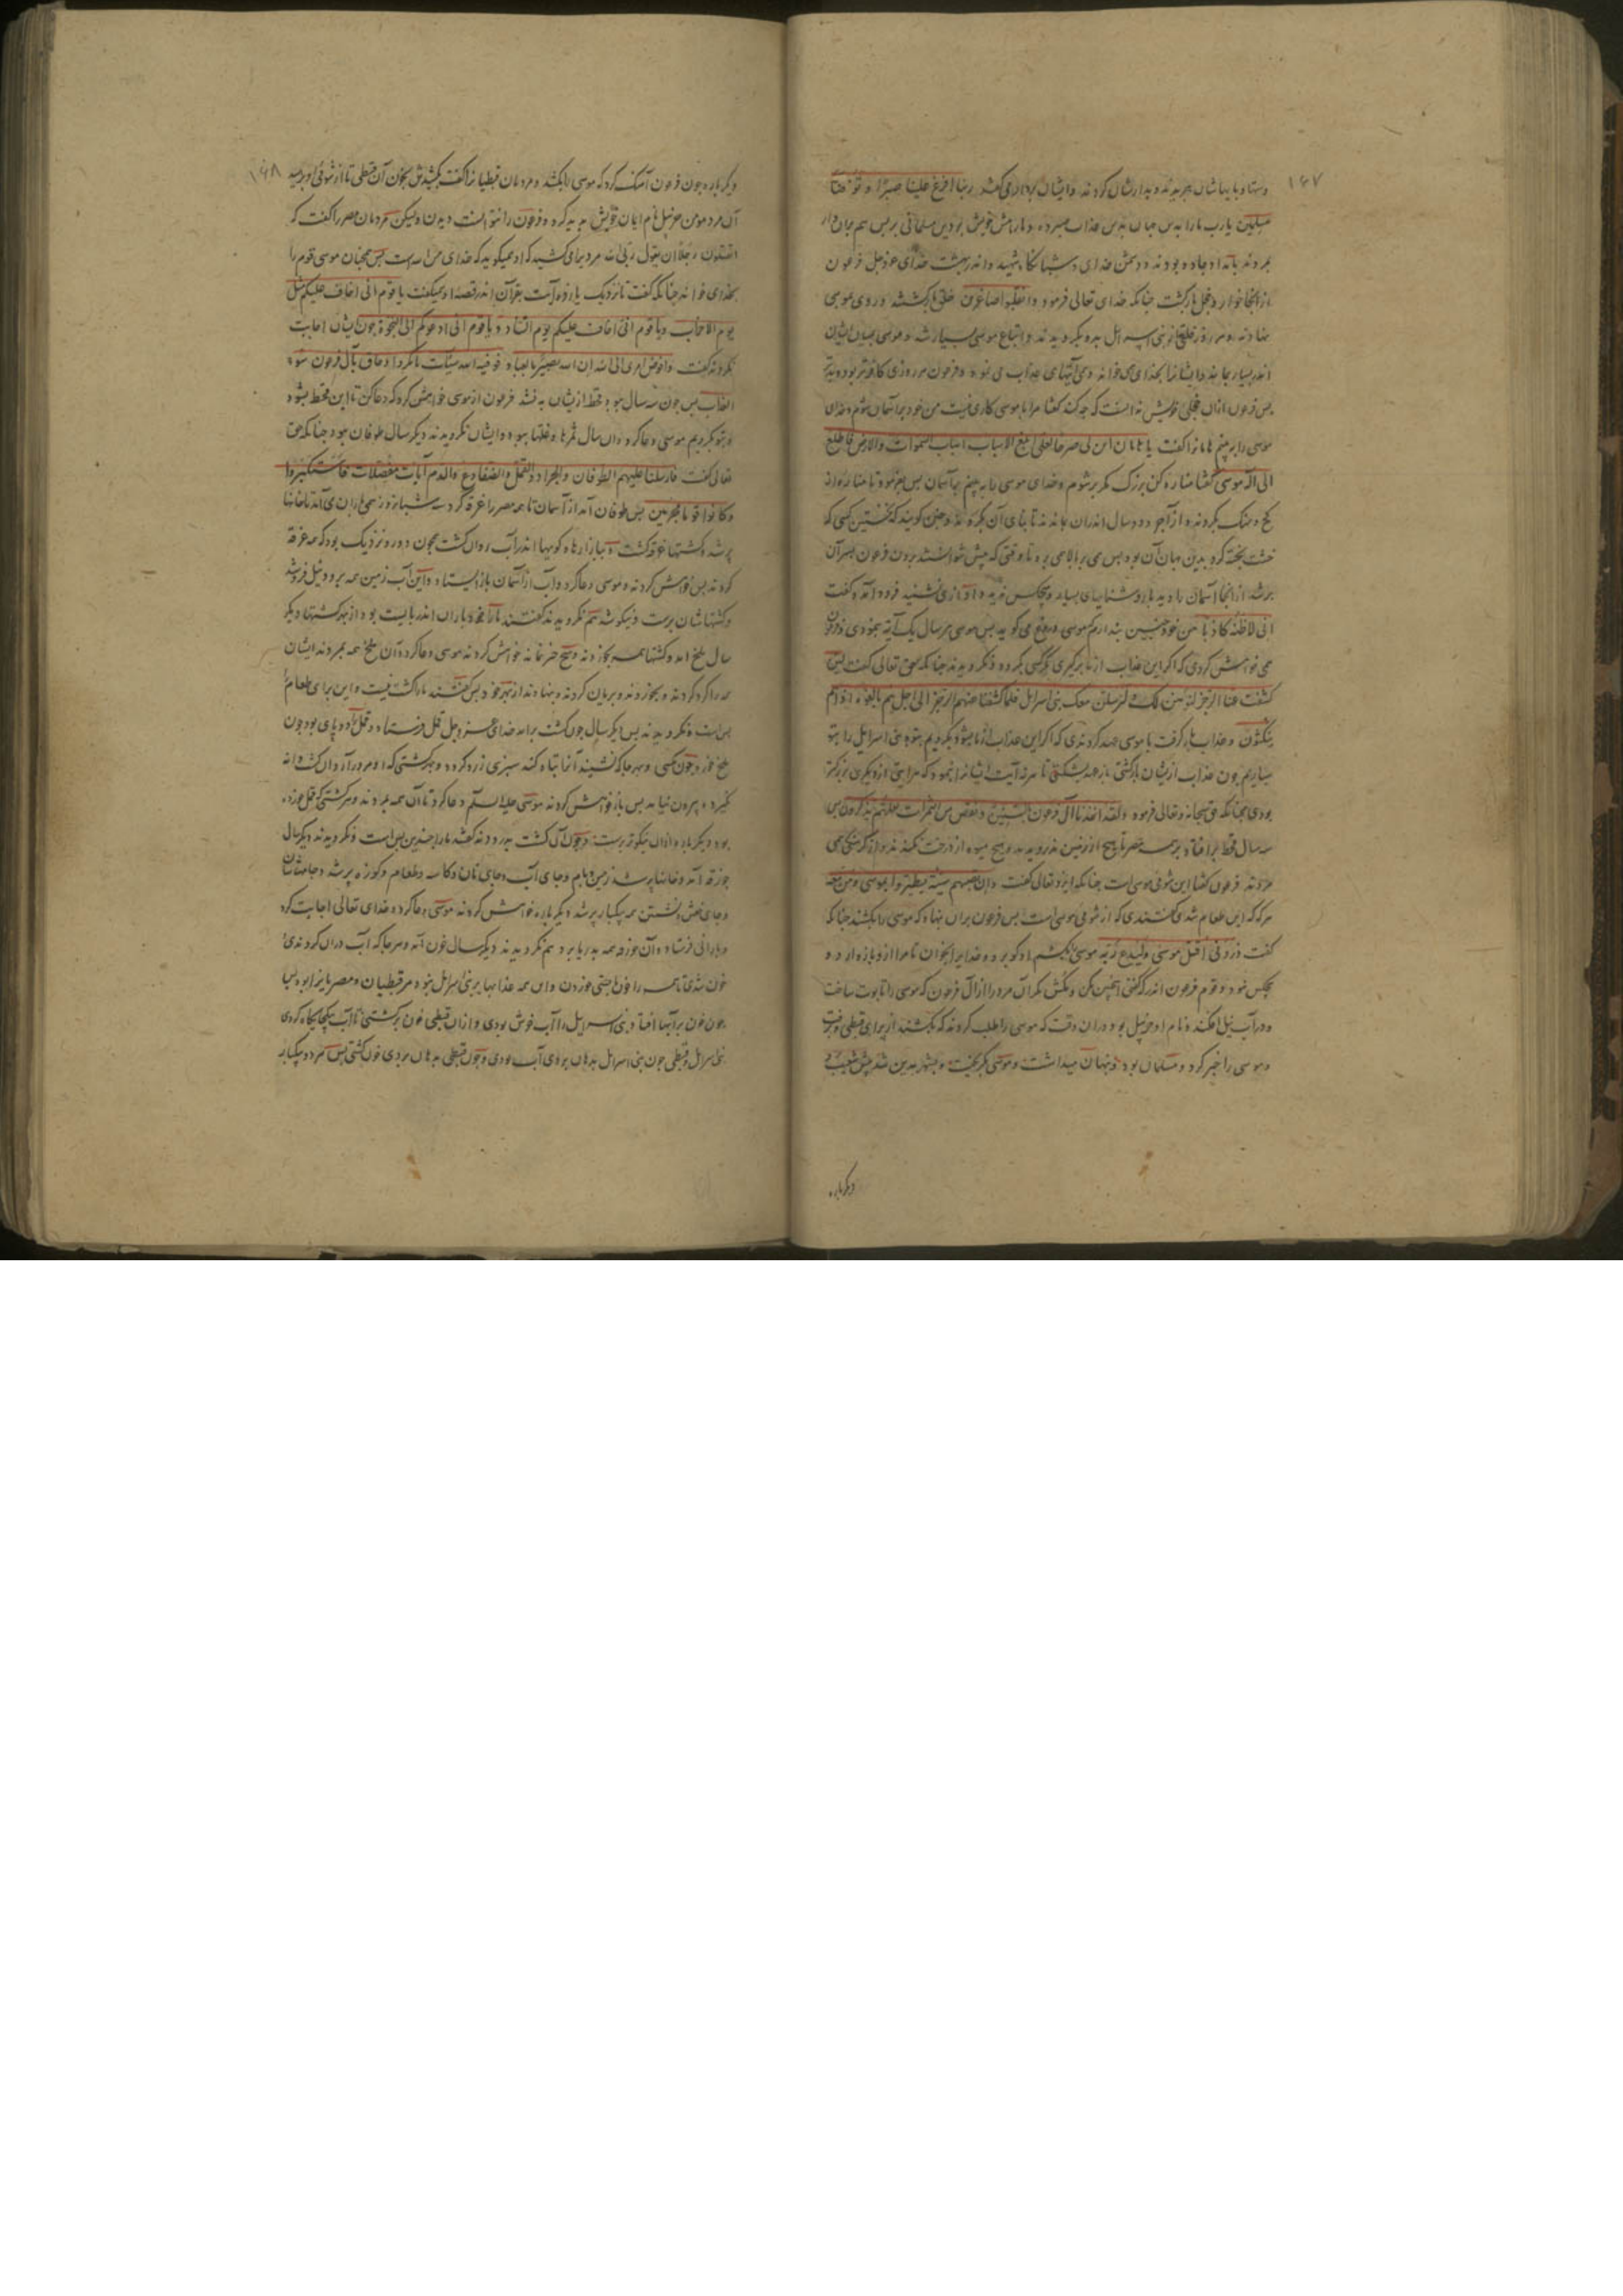 ۱۶۷
دستها و پایهاشان ببریدند و بدارشان کردند و ایشان بردار می گفتند ربنا افرغ علینا صبرا و توفنا
مسلمین یارب ما را بدین جهان بدین عذاب صبر ده و ما را منش خویش بر دین مسلمانی بر پس هم بران دار
بمردند بامداد جادو بودند و دشمن خدای و شبانگاه شهید و اندر بهشت خدای عز و جل فرعون
از آنجا خوار و خجل بازگشت چنانکه خدای تعالی فرمود وانقلبوا صاغرین خلق بازگشتند و روی بموسی
نهادند و هر روز خلقی از بنی اسرائیل بدو بگرویدند و اتباع موسی بسیار شد و موسی میان ایشان
اندر بسیار بماند و ایشانرا بخدای می خواند و می آیتهای عذاب می نمود و فرعون هر روزی کافرتر بود
پس فرعون ازان خجلی خویش ندانست که چه کند گفتا مرا با موسی کاری نیست من خود برآسمان شوم و خدای
موسی را ببینم هامانرا گفت یا هامان ابن لی صرحا لعلی ابلغ الاسباب اسباب السموات والارض فاطلع
الی اله موسی گفتا مناره کن بزرگ مگر برشوم و خدای موسی را ببینم بآسمان پس بفرمود تا مناره از
گچ و سنگ بکردند و از آجر و دو سال اندران بماندند تا بنای آن بکردند و چنین گویند که نخستین کسی که
خشت پخته کرد بدین جهان آن بود پس می بر بالا می برد تا وقتی که بیش نتوانستند بردن فرعون بسر آن
برشد از آنجا آسمان را دید با روشنایهای بسیار و هیچکس ندید و آوازی نشنید فرود آمد و گفت
انی لاظنه کاذبا من خود چنین پندارم که موسی دروغ می گوید پس موسی هر سال یک آیت بنمودی و فرعون
می خواهش کردی که اگر این عذاب از ما برگیری بگرویم و نگرویدند چنانکه حق تعالی گفت لئن
کشفت عنا الرجز لنؤمنن لک و لنرسلن معک بنی اسرائیل فلما کشفنا عنهم الرجز الی اجل هم بالغوه اذا هم
ینکثون و عذاب باز گرفت با موسی عهد کردندی که اگر این عذاب از ما بشود بگرویم بتو و بنی اسرائیل را بتو
سپاریم چون عذاب ازیشان بازگشتی باز عهد بشکستی تا هر نه آیت ایشانرا بنمود که هر آیتی از دیگری بزرگتر
بودی چنانکه حق سبحانه و تعالی فرمود ولقد اخذنا آل فرعون بالسنین ونقص من الثمرات لعلهم یذکرون پس
سه سال قحط بر افتاد بر همه مصر تا هیچ از زمین نروییدند و هیچ میوه از درخت نکندند و از گرسنگی می
مردند فرعون گفتا این شومی موسی است چنانکه ایزد تعالی گفت وان تصبهم سیئة یطیروا بموسی ومن معه
هرکه که این طعام شدی گفتندی که از شومی موسی است پس فرعون بران نهاد که موسی را بکشند چنانکه
گفت ذرونی اقتل موسی ولیدع ربه موسی بکشم او گو برو و خدایرا بخوان تا مرا ازو باز دارد و
هیچکس نبود و قوم فرعون اندر که گفتی اینچنین مکن و مکش مگر آن مرد را از آل فرعون که موسی را تابوت ساخت
و در آب نیل افکند و نام او حزبیل بود و دران وقت که موسی را طلب کردند که بکشند از برای قبطی و برفت
و موسی را خبر کرد و مسلمان بود و پنهان میداشت و موسی بگریخت و بشهر مدین شد پیش شعیب
دیگرباره
۱۶۸
دیگرباره چون فرعون آهنگ کرد که موسی را بکشد و مردمان قبطیانرا گفت بکشیدش بخون آن قبطی تا از شومی او برهید
آن مرد مومن حزبیل نام ایمان خویش پدید کرد و فرعون را نتوانست دیدن ولیکن مردمان مصر را گفت که
اتقتلون رجلا ان یقول ربی الله مردیرا می کشید که او همیگوید که خدای من الله است پس همچنان موسی قوم را
بخدای خواند چنانکه گفت تا نزدیک یازده آیت بقرآن اندر قصه او همیگفت یا قوم انی اخاف علیکم مثل
یوم الاحزاب ویا قوم انی اخاف علیکم یوم التناد ویا قوم انی ادعوکم الی النجوة چون ایشان اجابت
نکردند گفت وافوض امری الی الله ان الله بصیر بالعباد فوقیه الله سیئات ما مکروا وحاق بآل فرعون سوء
العذاب پس چون سه سال ببود و قحط ازیشان بنشد فرعون از موسی خواهش کرد که دعا کن تا این قحط بشود
و بتو بگرویم موسی دعا کرد و آن سال ثمرها و غلها ببود و ایشان نگرویدند و دیگر سال طوفان بود چنانکه حق
تعالی گفت فارسلنا علیهم الطوفان والجراد والقمل والضفادع والدم آیات مفصلات فاستکبروا
وکانوا قوما مجرمین پس طوفان آمد از آسمان تا همه مصر را غرقه کرد و سه شبانروز همی باران می آمد تا خانها
پرشد و کشتها غرقه گشت و ببازارها و کویها اندر آب روان گشت چون دو رود و نزدیک بود که همه غرقه
گردند پس خواهش کردند و موسی دعا کرد و آب از آسمان باز ایستاد و این آب زمین همه برود نیل فرو شد
و کشتهاشان برست و نیکو شد هم نگرویدند گفتند ما را خود باران اندر بایست بود از بهر کشتها دیگر
سال ملخ آمد و کشتها همه بخوردند و هیچ چیز نماند خواهش کردند موسی دعا کرد و آن ملخ همه بمردند ایشان
همه را گرد کردند و بخوردند و بریان کردند و بنهادند از بهر خود پس گفتند ما را کشت نیست و این برای طعام ما
بس است و نگرویدند پس دیگر سال چون کشت برآمد خدای عز و جل قمل فرستاد و قمل دوپای بود چون
ملخ خرد چون مگسی و بهر جا که نشیند آنرا تباه کند سبزی زرد گردد و بهر کشتی که او مرور آرد آن کشت دانه
نگیرد و بیرون نیاید پس باز خواهش کردند موسی علیه السلم دعا کرد تا آن همه بمردند و هر کشتی که قمل خورده
بود دیگرباره ازان نیکوتر برست و چون آن کشت بدرودند گفتند ما را چندین بس است و نگرویدند دیگر سال
چوزقه آمد و خانها پر شد زمین و بام و جای آب و جای نان و کاسه و طعام و کوزه پر شد و جامهاشان
و جای خفتن و نشستن همه بیکبار پر شد دیگرباره خواهش کردند موسی دعا کرد و خدای تعالی اجابت کرد
و بارانی فرستاد و آن چوزقه همه بدریا برد هم نگرویدند دیگر سال خون آمد و هر جا که آب دران کردندی
خون شدی تا همه را خون بایستی خوردن و این همه عذابها بر بنی اسرائیل نبود مر قبطیان و مصریانرا بود پس
چون خون برآبها افتاد بنی اسرائیل را آب خوش بودی و ازان قبطی خون گشتی تا آب بیکجایگاه کردی
بنی اسرائیل و قبطی چون بنی اسرائیل بدهان بردی آب بودی و چون قبطی بدهان بردی خون گشتی پس مردم بیکبار